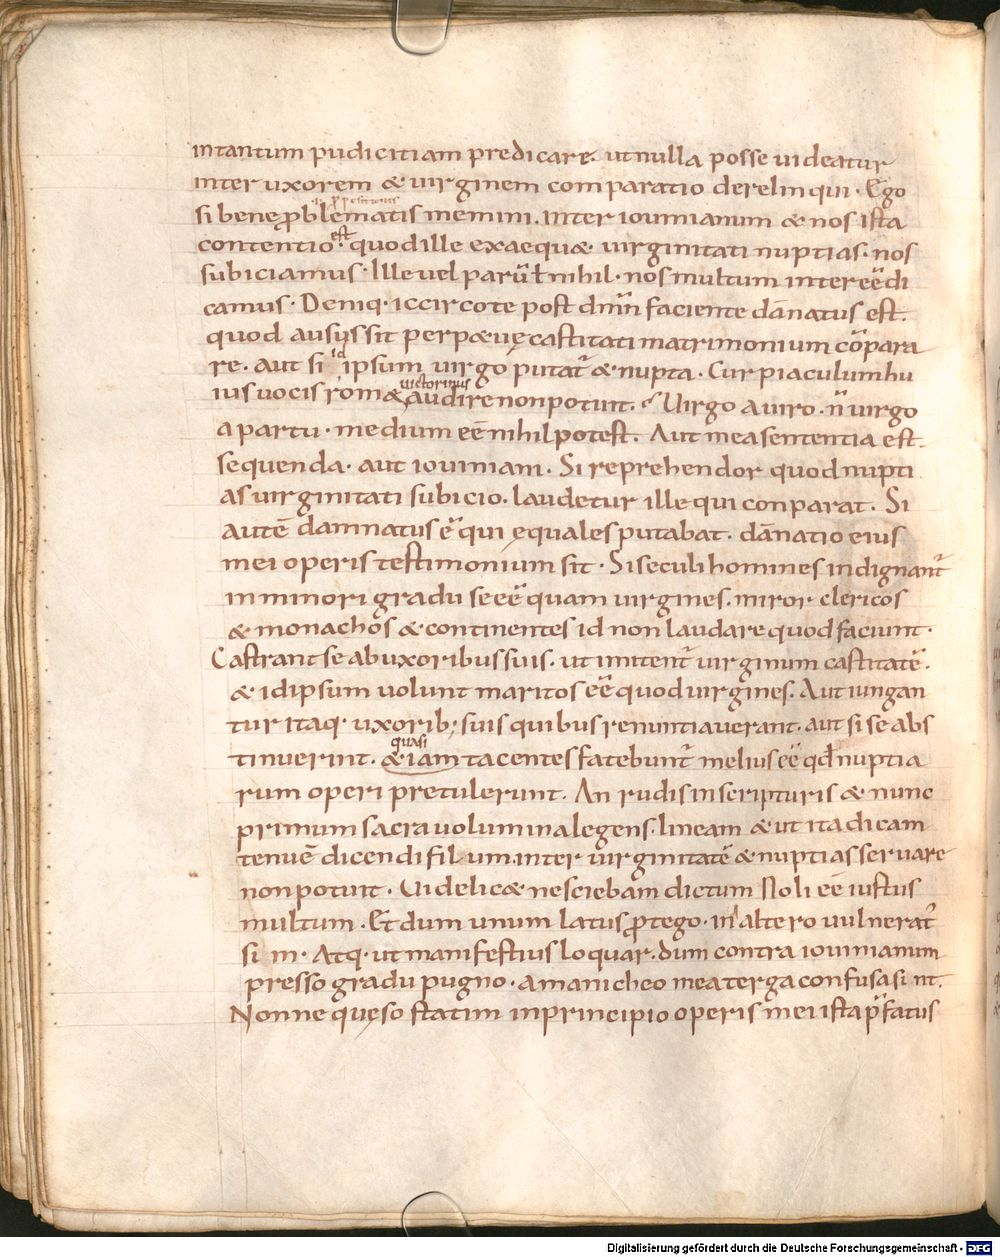 intantum pudicitiam predicare. ut nulla posse uideatur
inter uxorem & uirginem comparatio derelinqui. Ego
si bene ꝓblematis memini. inter iouinianum & nos ista
contentio est. quod ille exaequ& uirginitati nuptias. nos
subiciamus. Ille uel parū ł nihil. nos multum interee͞ di
camus. Deniq. iccirco te post dn̄m faciente dānatus est.
quod ausus sit perp&uę castitati matrimonium cōpara
re. aut si id ipsum uirgo putat̄ & nupta. Cur piaculum hu
uictorinus
ius uocis rom& audire non potuit. Uirgo a uiro. n̄ uirgo
a partu. medium ee͞ nihil potest. Aut mea sententia est
sequenda. aut iouiniani. Si reprehendor quod nupti
as uirginitati subicio. laudetur ille qui conparat. Si
autē damnatus ē qui ęquales putabat. dānatio eius
mei operis testimonium sit. Si seculi homines indignant̄
in minori gradu se ee͞ quam uirgines. miror clericos
& monachos & continentes id non laudare quod faciunt.
Castrant se ab uxoribus suis. ut imitent̄ uirginum castitatē.
& id ipsum uolunt maritos ee͞ quod uirgines. Aut iungan
tur itaq. uxorib; suis quibus renuntiauerant. aut si se abs
quasi
tinuerint. &iam tacentes fatebunt̄ melius ee͞ qd̄ nuptia
rum operi pretulerunt. An rudis in scripturis & nunc
primum sacra uolumina legens. lineam & ut ita dicam
tenuē dicendi filum. inter uirginitatē & nuptias seruare
non potuit. Uidelic& nesciebam dictum Noli ee͞ iustus
multum. Et dum unum latus ꝓtego. in altero uulnerat̄
sim. Atq. ut manifestius loquar. dum contra iouinianum
presso gradu pugno. a manicheo mea terga confusa sint.
Nonne quęso statim in principio operis mei ista p̄fatus